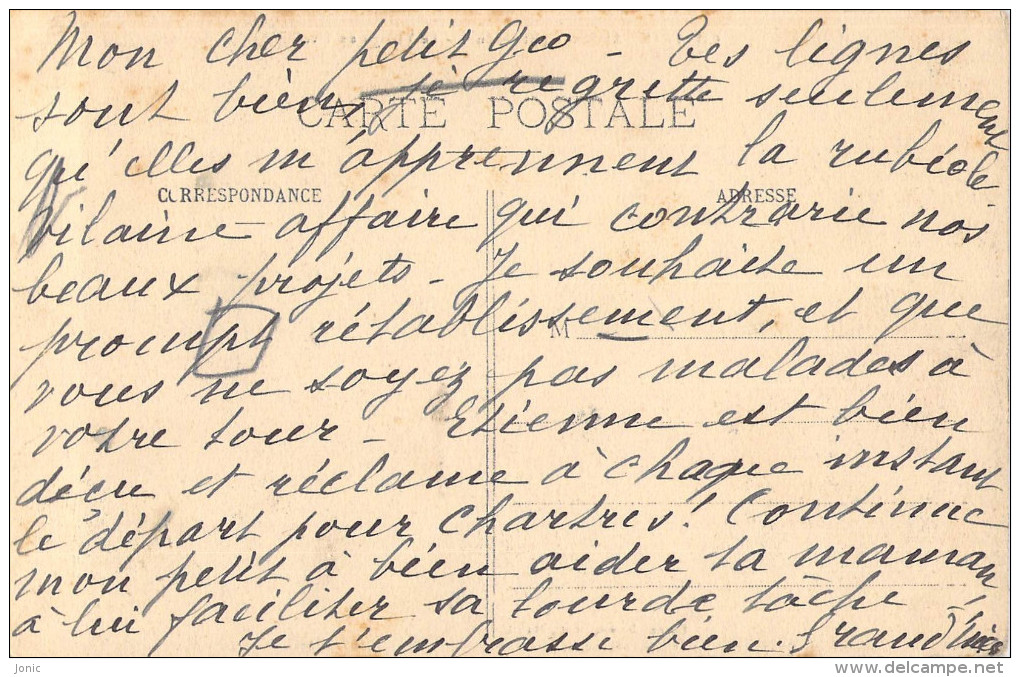 Mon cher petit Géo - Tes lignes
sont bien, je regrette seulement
CARTE POSTALE
qu'elles m'apprennent la rubéole
CORRESPONDANCE
ADRESSE
vilaine affaire qui contrarie nos
beaux projets - Je souhaite un
prompt rétablissement, et que
M
vous ne soyez pas malades à
votre tour - Etienne est bien
déçu et réclame à chaque instant
le départ pour Chartres! Continue
mon petit à bien aider ta maman
à lui faciliter sa lourde tâche -
Je t'embrasse bien. Grand'mère
Jonic
www.delcampe.net